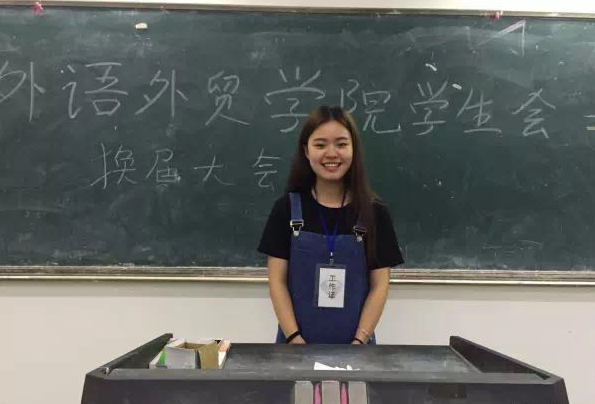 外语外贸学院学生会
换届大会
工作证